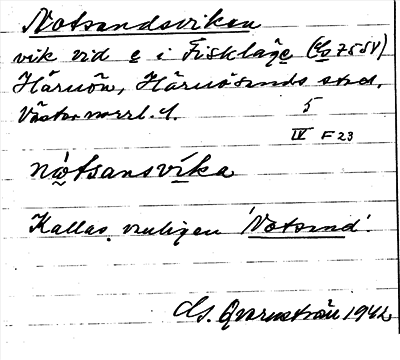 Notsandsviken
vik vid e i Fiskläge (Ls 7558V)
Härnön, Härnösands stad,
Västernorrl. l. 5
IV F 23
nòtsansvíka
Kallas vanligen 'Notsand'.
Qvarnström 1942